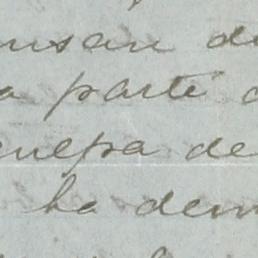 ensan de
a parte
culpa de
ha dem